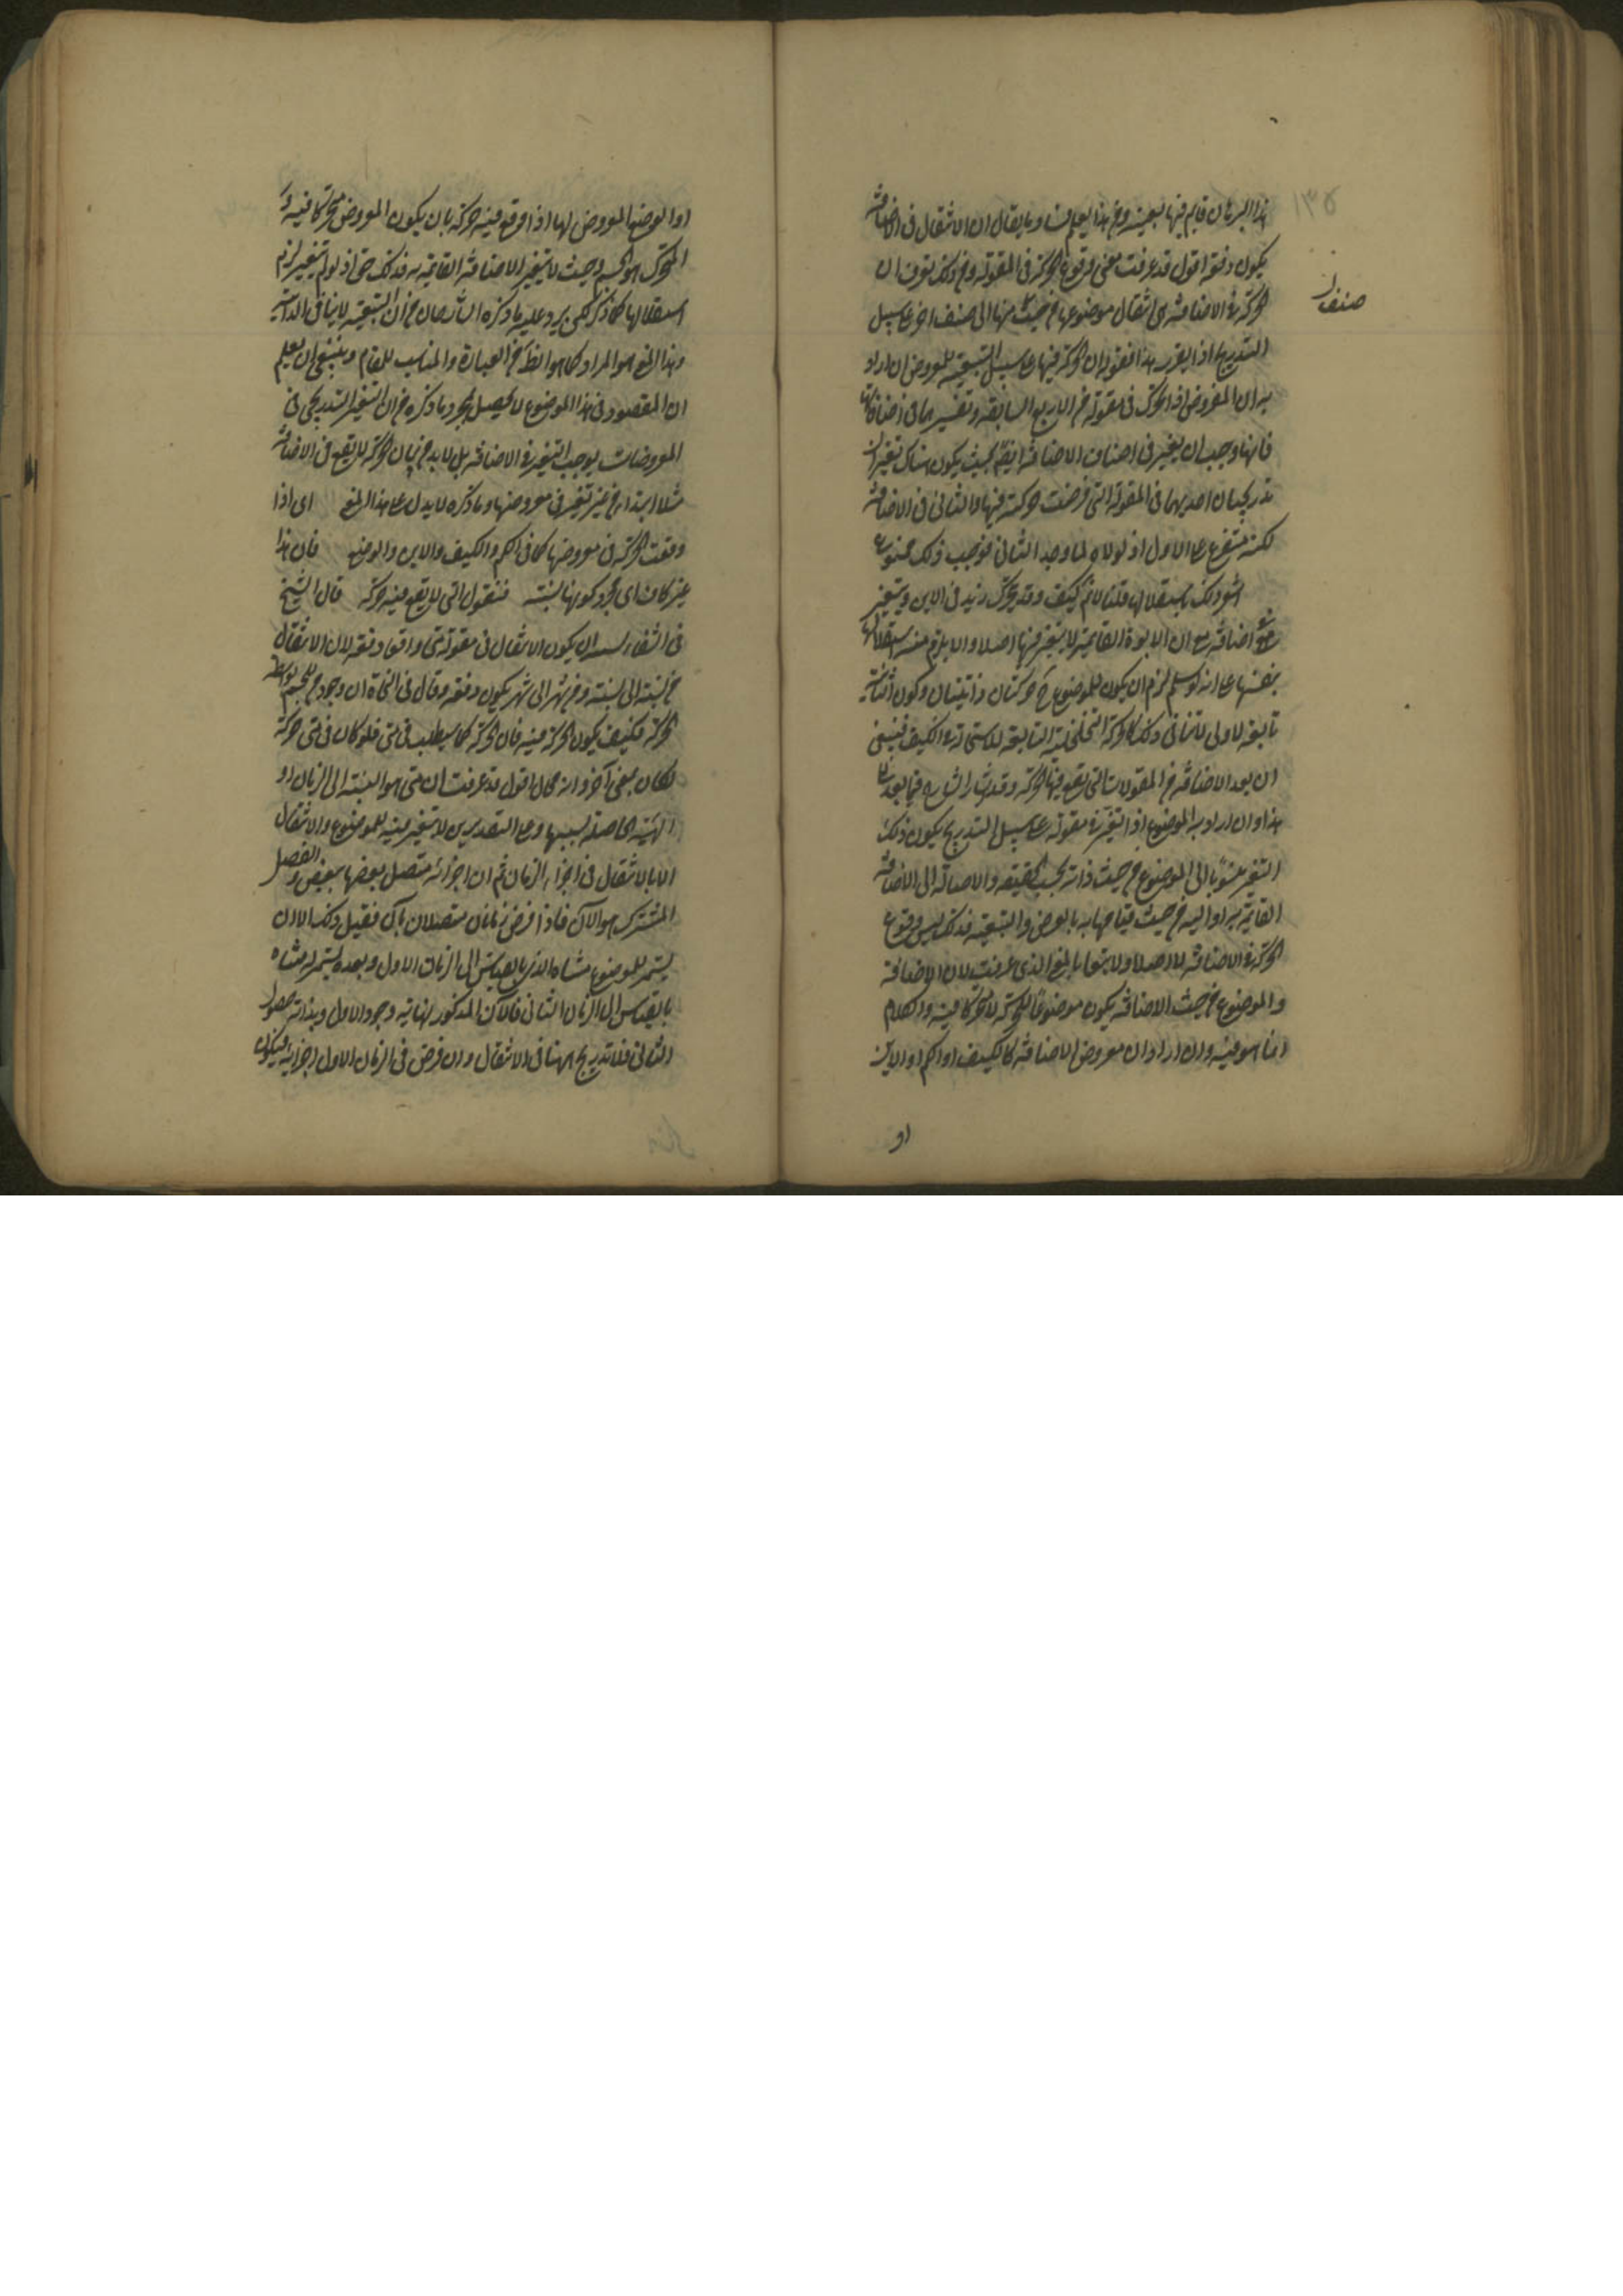 ١٣٥
هذا البرهان قايم فيها بعينه ومن هذا يعلم فساد ما يقال ان الانتقال فى الاضافة
يكون دفعة اقول قد عرفت معنى وقوع الحركة فى المقولة ومن ذلك تعرف ان
الحركة فى الاضافة هى انتقال موضوعها من حيث منها الى صنف اخر على سبيل
صنف
التدريج اذا تقرر هذا فقوله ان الحركة فيها على سبيل التبعية للمعروض ان اراد
به ان المفروض اذا تحرك فى مقولة من الاربع السابقة وتغير بها فى اضافاتها
فانها وجب ان يتغير فى اصناف الاضافة ايضا بحيث يكون هناك تغيران
تدريجيان احديهما فى المقولة التى فرضت حركته فيها والثانى فى الاضافة
لكنه متفرع على الاول اذ لولاه لما وجد الثانى فوجب ذلك ممنوع
باستقلالها قلنا لا ثم كيف وقد يتحرك زيد فى الاين ويتغير
اضافة مع ان الابوة القايمة لا يتغير فيها اصلا ولا يلزم منه استقلالها
بنفسها على انه لو سلم لزم ان يكون للموضوع ح حركتان ذاتيتان وكون الثانية
تابعة للاولى لا تنافى ذلك كالحركة التخلخلية التابعة للاستحالة فى الكيف فينبغى
ان يعد الاضافة من المقولات التى تقع فيها الحركة وقد اشار الشارح فيما بعد
هذا وان اراد به الموضوع اذا تغير فى مقولة على سبيل التدريج يكون ذلك
التغير منسوبا الى الموضوع من حيث ذاته بحسب الحقيقة والاصالة الى الاضافة
القايمة به او اليه من حيث قيامها به بالعرض والتبعية فذلك ليس وقوع
الحركة فى الاضافة لا اصلا ولا تبعا بالمعنى الذى عرفت لان الاضافة
والموضوع من حيث الاضافة يكون موضوعا للحركة لا متحركا فيه والكلام
انما هو فيه وان اراد ان معروض الاضافة كالكيف او الكم او الاين
او
او الوضع المعروض لها اذا وقع فيه حركة بان يكون المعروض متحركا فيه
المتحرك هو الجسم وحيث لا يتغير الاضافة القايمة به فذلك حق اذ لو لم تتغير لزم
استقلالها كما ذكر لكن يرد عليه ما ذكره الشارحان من ان التبعية لا ينافى الذاتية
وهذا المعنى هو المراد كما هو الظ من العبارة والمناسب للمقام وينبغى ان يعلم
ان المقصود فى هذا الموضوع لا يحصل بمجرد ما ذكره من ان التغير التدريجى فى
المعروضات يوجب التغير فى الاضافة بل لا بد من بيان ان الحركة لا يقع فى الاضافة
مثلا ابتداء من غير تغير فى معروضها وما ذكره لا يدل على هذا المعنى اى اذا
وقعت الحركة فى معروضها كما فى الكم والكيف والاين والوضع فان هذا
غير كاف اى مجرد كونها نسبة فنقول متى لا يقع فيه حركة قال الشيخ
فى الشفاء يشبه ان يكون الانتقال فى مقولة متى واقعا دفعة لان الانتقال
من سنة الى سنة ومن شهر الى شهر يكون دفعة وقال فى النجاة ان وجود متى للجسم بواسطة
الحركة فكيف يكون الحركة فيه فان الحركة كما سيطلب فى متى فلو كان فى متى حركة
لكان لمتى متى آخر وانه محال اقول قد عرفت ان متى هو النسبة الى الزمان او
الهيئة الحاصلة بسببها وعلى التقديرين لا يتغير فيه للموضوع والانتقال
الا بالانتقال فى اجزاء الزمان ثم ان اجزائه متصل بعضها ببعض والفصل
المشترك هو الآن فاذا فرض زمانان متصلان بآن فقبل ذلك الان
يستمر للموضوع متاه الذى بالقياس الى الزمان الاول وبعده يستمر له متاه
بالقياس الى الزمان الثانى فالآن المذكور نهاية وجود الاول وبداية حصول
الثانى فلا تدريج ههنا فى الانتقال وان فرض فى الزمان الاول اجزائه فيكون